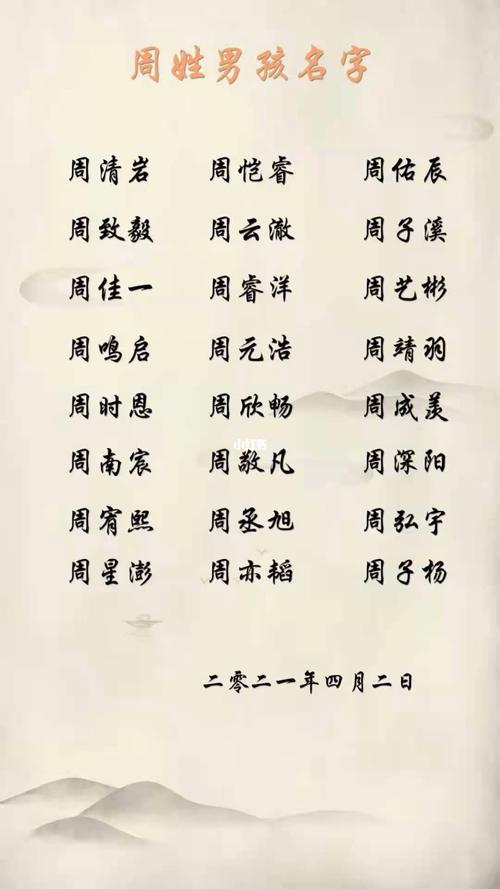 周姓男孩名字
周清岩 周恺睿 周佑辰
周致毅 周云澈 周子溪
周佳一 周睿洋 周艺彬
周鸣启 周元浩 周靖羽
周时恩 周欣畅 周成羡
小红书
周南宸 周敬凡 周深阳
周宥熙 周丞旭 周弘宇
周星澎 周亦韬 周子杨
二零二一年四月二日